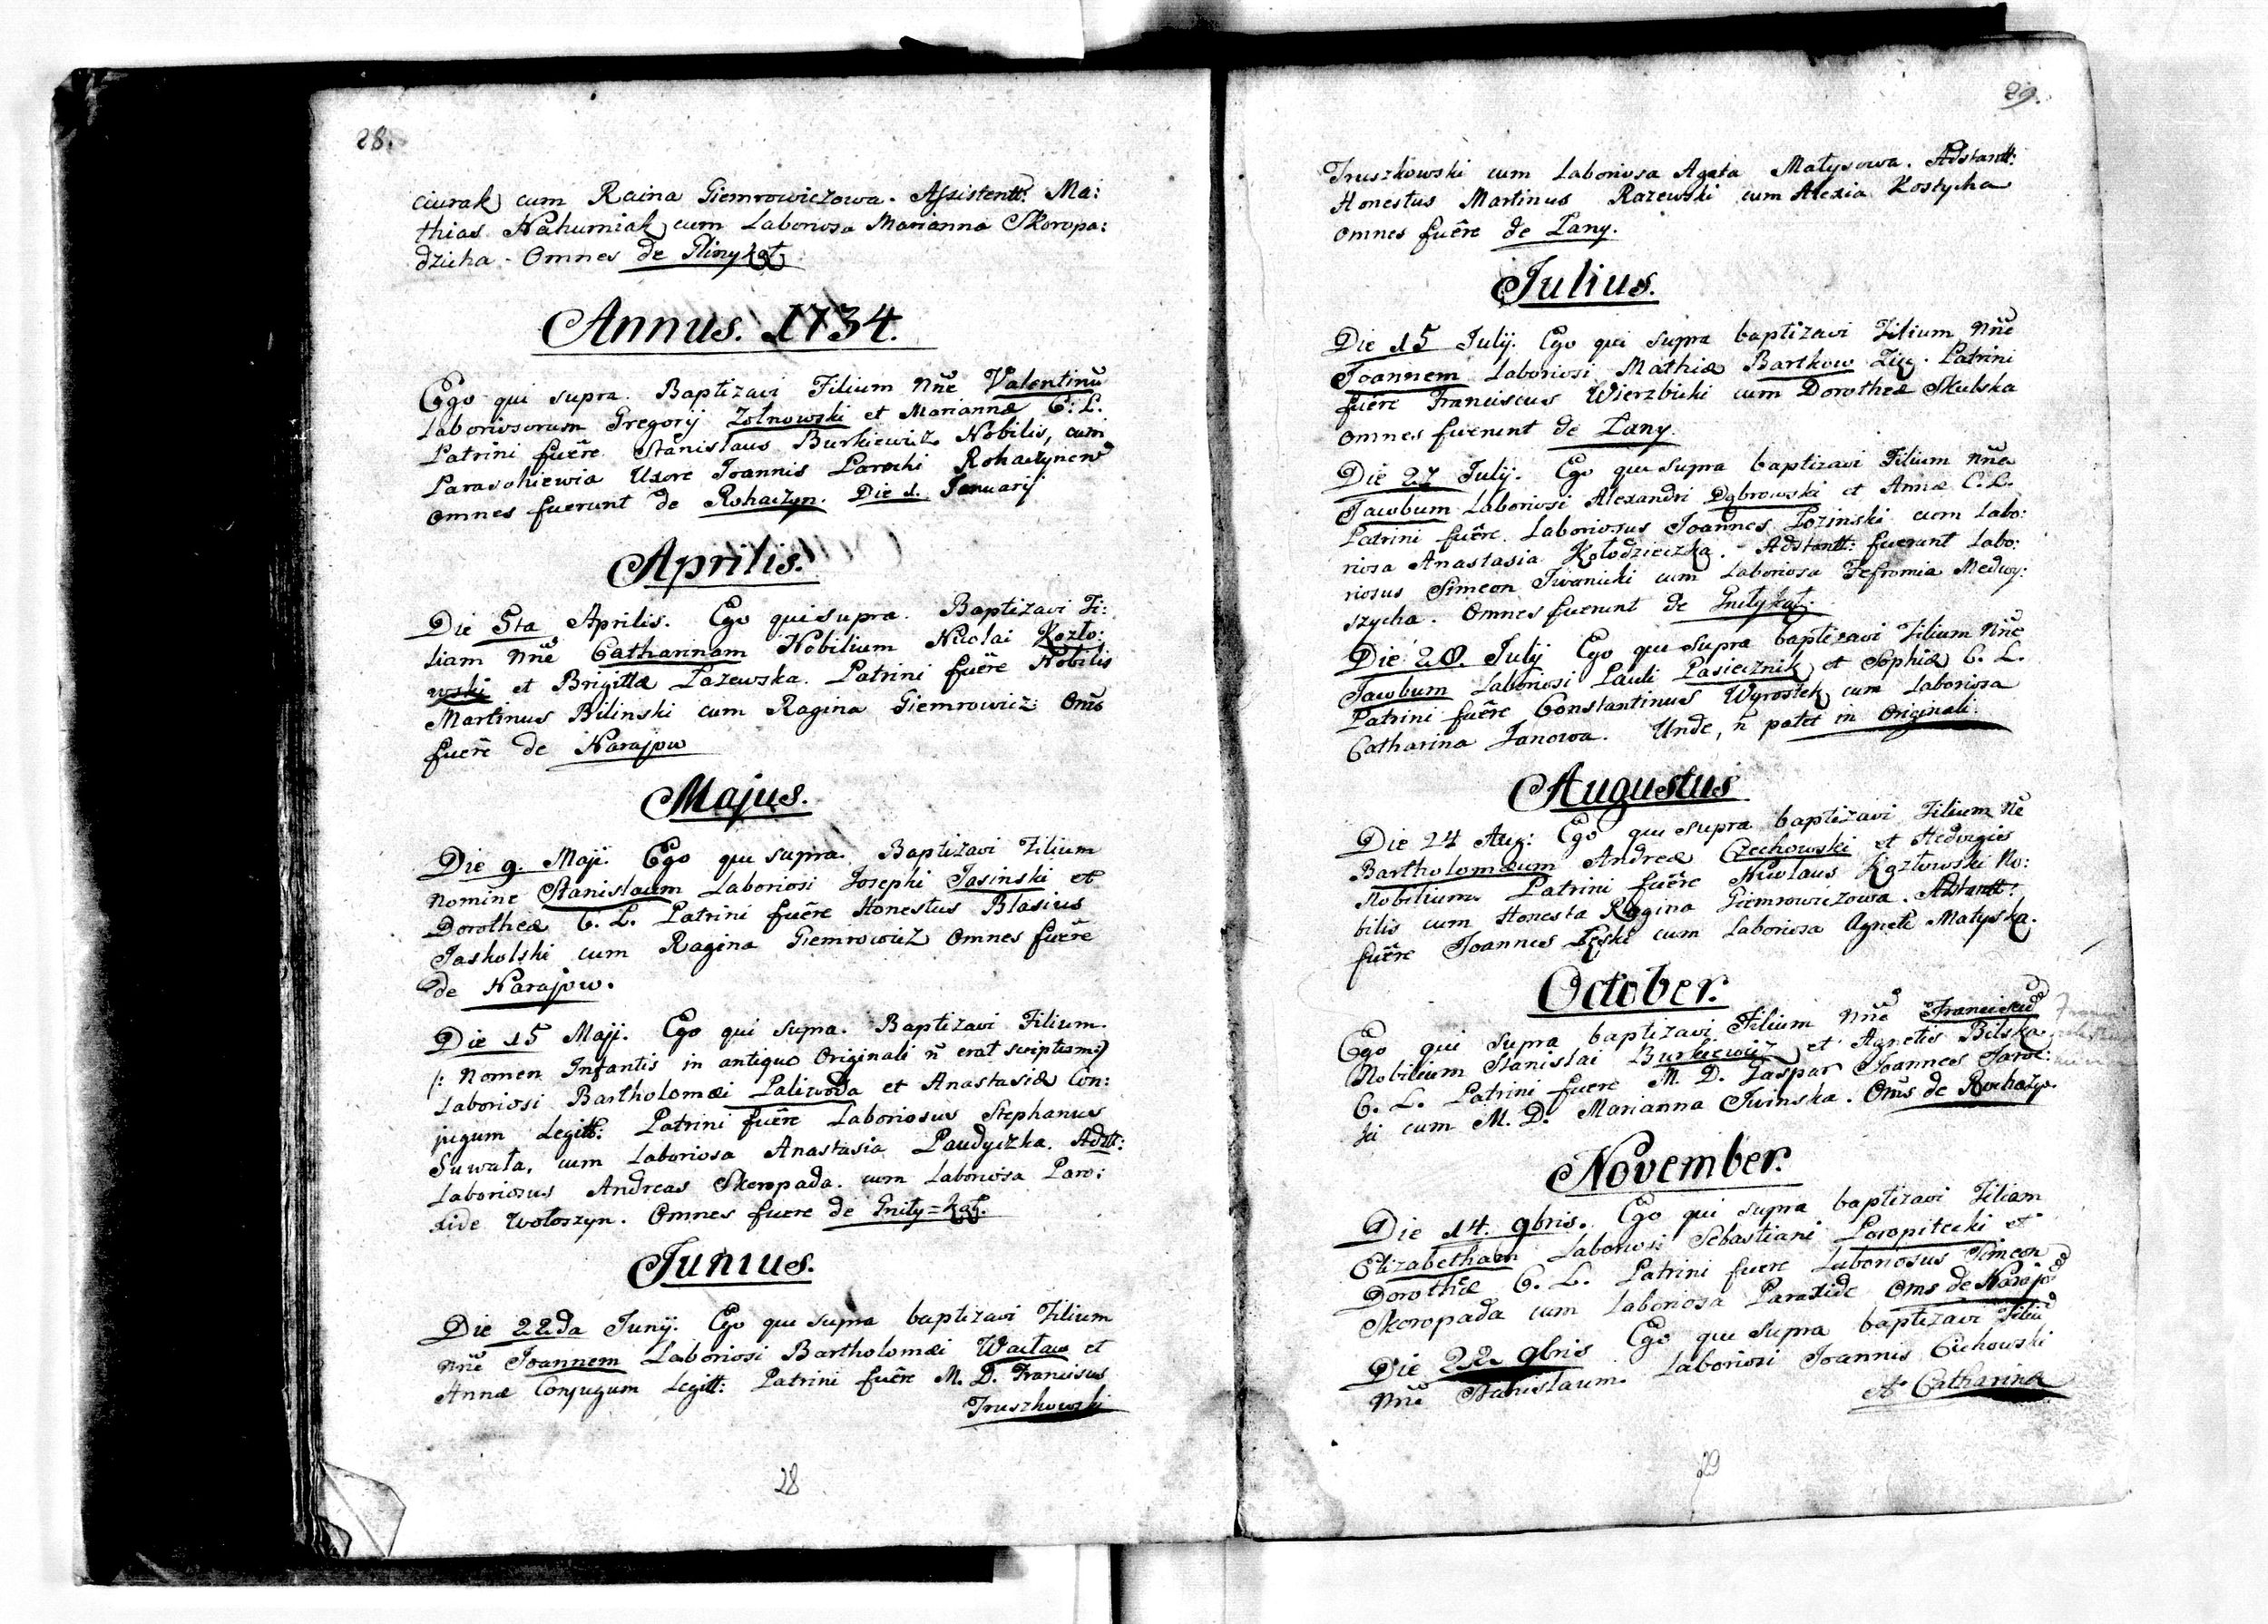 28.
ciurak cum Raina Giemrowiczowa. Assistentt: Ma:
thias Nahurniak cum Laboriosa Marianna Skoropa:
dzicha. Omnes de
Annus. 1734.
Ego qui supra. Baptizavi Filium Nñe Valentinũ
Laboriosorum Gregorij Zolnowski et Mariannæ C: L.
Patrini fuêre Stanislaus Burkiewicz Nobilis, cum
Paraschiewia Uxore Joannis Parochi
omnes fuerunt de Rohaczyn. Die 1. Januarij
Aprilis.
Die 5ta Aprilis. Ego qui supra. Baptizavi Fi:
liam Nñe Catharinam Nobilium Nicolai Kozło:
wski et Brigittæ Łazewska. Patrini fuêre Nobilis
Martinus Bilinski cum Ragina Giemrowicz Oms
fuêre de Narajow
Majus.
Die 9. Maji. Ego qui supra. Baptizavi Filium
Nomine Stanislaum Laboriosi Josephi Jasinski et
Dorotheæ C. L. Patrini fuêre Honestus Blasius
Jaskolski cum Ragina Giemrowicz Omnes fuêre
de Narajow.
Die 15 Maji. Ego qui supra. Baptizavi Filium.
/: Nomen Infantis in antiquo Originali ñ erat scriptum:/
Laboriosi Bartholomæi Paliwoda et Anastasiæ Con:
jugum Legitt: Patrini fuêre Laboriosus Stephanus
Suwała, cum Laboriosa Anastasia Paudyczka. Adstt:
Laboriosus Andreas Skoropada. cum Laboriosa Para:
xide Wołoszyn. Omnes fuere de Gniły=Kąt.
Junius.
Die 22da Junij. Ego qui supra baptizavi Filium
Nñe Joannem Laboriosi Bartholomæi Wacław et
Annæ Conjugum Legitt: Patrini fuêre M. D. Franciscus
Truszkowski
28
29.
Truszkowski cum Laboriosa Agata Matysowa. Adstantt:
Honestus Martinus Razewski cum Alexia Kostycha
omnes fuêre de Łany.
Julius.
Die 15 Julij. Ego qui supra baptizavi Filium Nñe
Joannem Laboriosi Mathiæ Bartkow Patrini
fuêre Franciscus Wierzbicki cum Dorothea Skulska
omnes fuerunt de Łany.
Die 27 Julij. Ego qui supra baptizavi Filium Nñe
Jacobum Laboriosi Alexandri Dąbrowski et Annæ C. L.
Patrini fuêre Laboriosus Joannes Łozinski cum Labo:
riosa Anastasia Kołodzieiczka. Adstantt: fuerunt Labo:
riosus Simeon Iwanicki cum Laboriosa Fefronia Medwy:
szycha. Omnes fuerunt de Gniłykąt.
Die 28. Julij Ego qui supra baptizavi Filium Nñe
Jacobum Laboriosi Pauli Pasiecznik et Sophiæ C. L.
Patrini fuêre Constantinus Wyrostek cum Laboriosa
Catharina Janowa. Unde, ñ patet in Originali.
Augustus
Die 24 Aug: Ego qui supra baptizavi Filium Ne
Bartholomæum Andreæ Czechowski et Hedvigis
Nobilium. Patrini fuêre Nicolaus Kozłowski No:
bilis cum Honesta Ragina Giemrowiczowa. Adstantt:
fuêre Joannes Łęski cum Laboriosa Agnete Matyska.
October.
Ego qui supra baptizavi Filium Nñe Franciscũ
Nobilium Stanislai Burkiewicz et Agnetis Bilska.
C. L. Patrini fuere M. D. Gaspar Joannes Jaroc:
ki cum M. D. Marianna Iwinska. Oms de Rochaczyn.
November.
Die 14. 9bris. Ego qui supra baptizavi Filiam
Elizabetham Laboriosi Sebastiani Poropitecki et
Dorothæ C. L. Patrini fuere Laboriosus Simeon
Skoropada cum Laboriosa Paraxide Oms de Narajow
Die 22 9bris Ego qui supra baptizavi Filiũ
Nñe Stanislaum. Laboriosi Joannis Cichowski
et Catharina
29